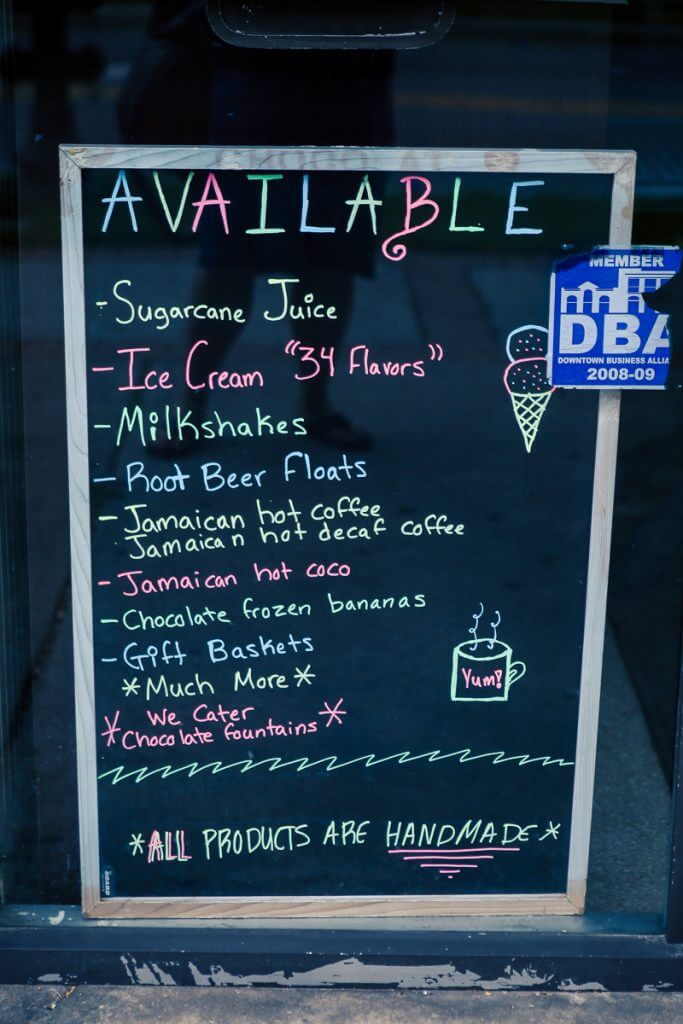 AVAILABLE
- Sugarcane Juice
- Ice Cream "34 Flavors"
- Milkshakes
- Root Beer Floats
- Jamaican hot coffee
Jamaican hot decaf coffee
- Jamaican hot coco
- Chocolate frozen bananas
- Gift Baskets
*Much More*
* We Cater *
Chocolate fountains
Yum!
*ALL PRODUCTS ARE HANDMADE*
MEMBER
DBA
DOWNTOWN BUSINESS ALLIA
2008-09